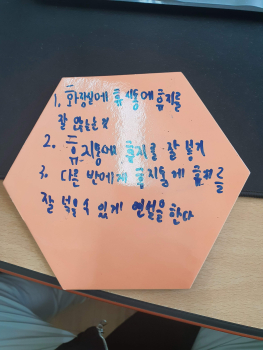 1. 화장실에 휴지통에 휴지를
잘 않는지
2. 휴지통에 휴지를 잘 넣기
3. 다른 반에게 휴지통에 휴지를
잘 넣을 수 있게 연설을 한다